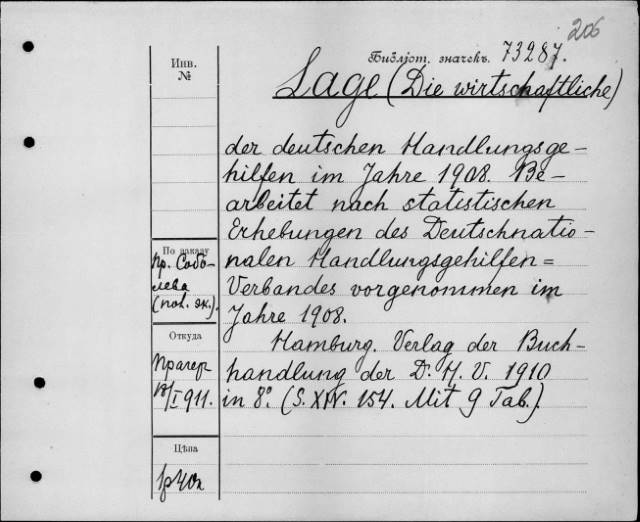 206
Библіот. значекъ. 73287.
Инв.
№
Lage (Die wirtschaftliche)
der deutschen Handlungsge-
hilfen im Jahre 1908. Be-
arbeitet nach statistischen
Erhebungen des Deutschnatio-
nalen Handlungsgehilfen=
Verbandes vorgenommen im
Jahre 1908.
Hamburg. Verlag der Buch-
handlung der D. H. V. 1910
in 8° (S. XIV. 154. Mit 9 Tab.).
По заказу
пр. Собо-
лева
(пол. эк.).
Откуда
Прагер
/I 911.
Цѣна
1р40к